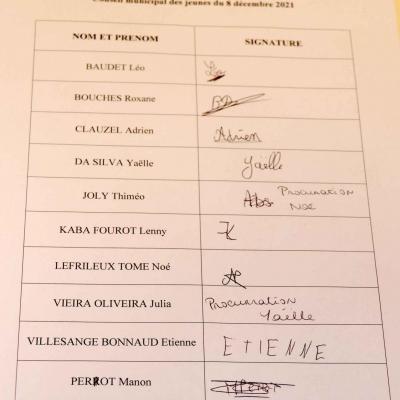 Conseil municipal des jeunes du 8 décembre 2021
NOM ET PRENOM SIGNATURE
BAUDET Léo Léo
BOUCHES Roxane
CLAUZEL Adrien Adrien
DA SILVA Yaëlle Yaëlle
JOLY Thiméo Abs Procuration
Noé
KABA FOUROT Lenny
LEFRILEUX TOME Noé
VIEIRA OLIVEIRA Julia Procuration
Yaëlle
VILLESANGE BONNAUD Etienne ETIENNE
PERROT Manon